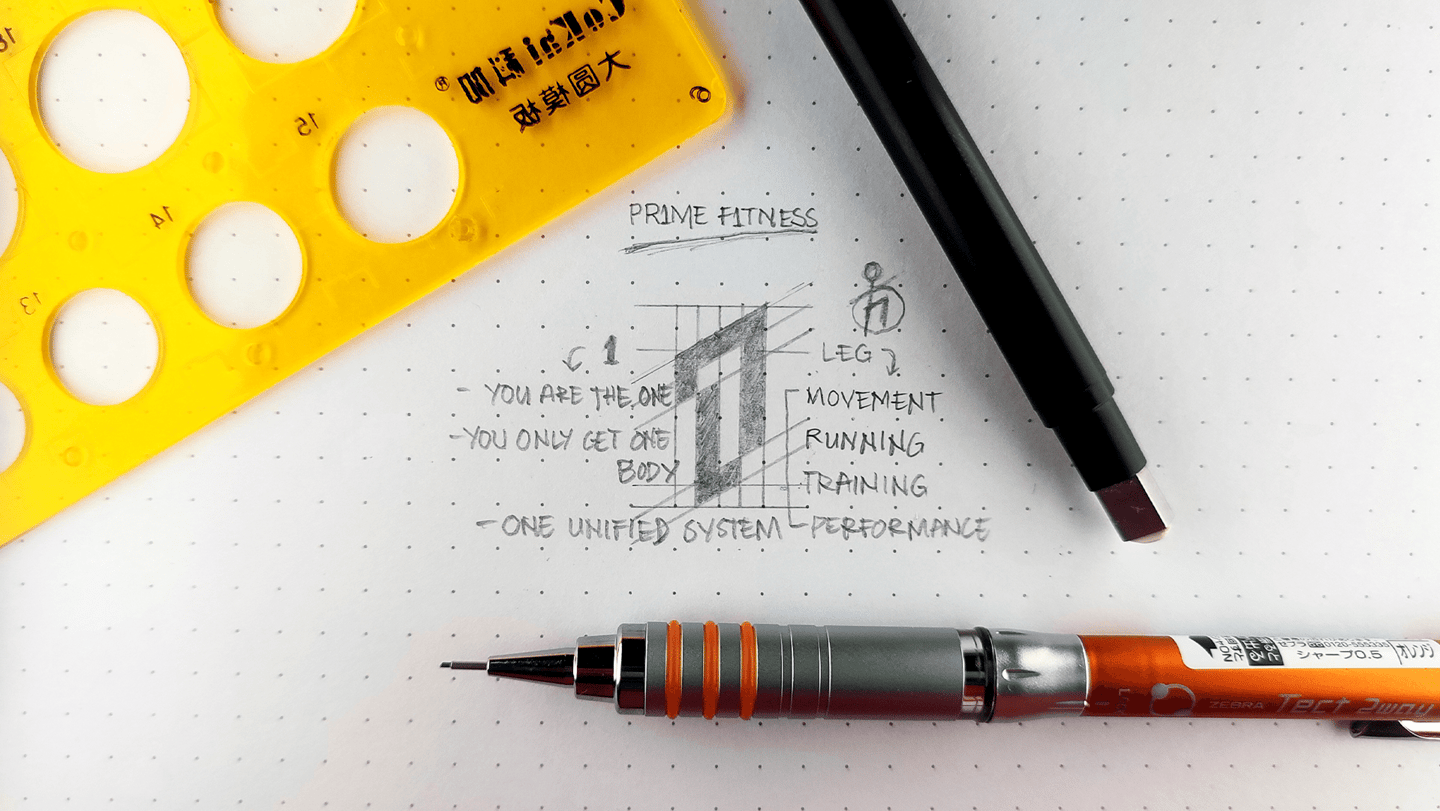 CoKai 科加®
大圆模板
18
15
14
13
6
PR1ME F1TNESS
1
LEG
- YOU ARE THE ONE
- YOU ONLY GET ONE
BODY
- ONE UNIFIED SYSTEM
MOVEMENT
RUNNING
TRAINING
PERFORMANCE
シャープ0.5
ZEBRA Tect 2way